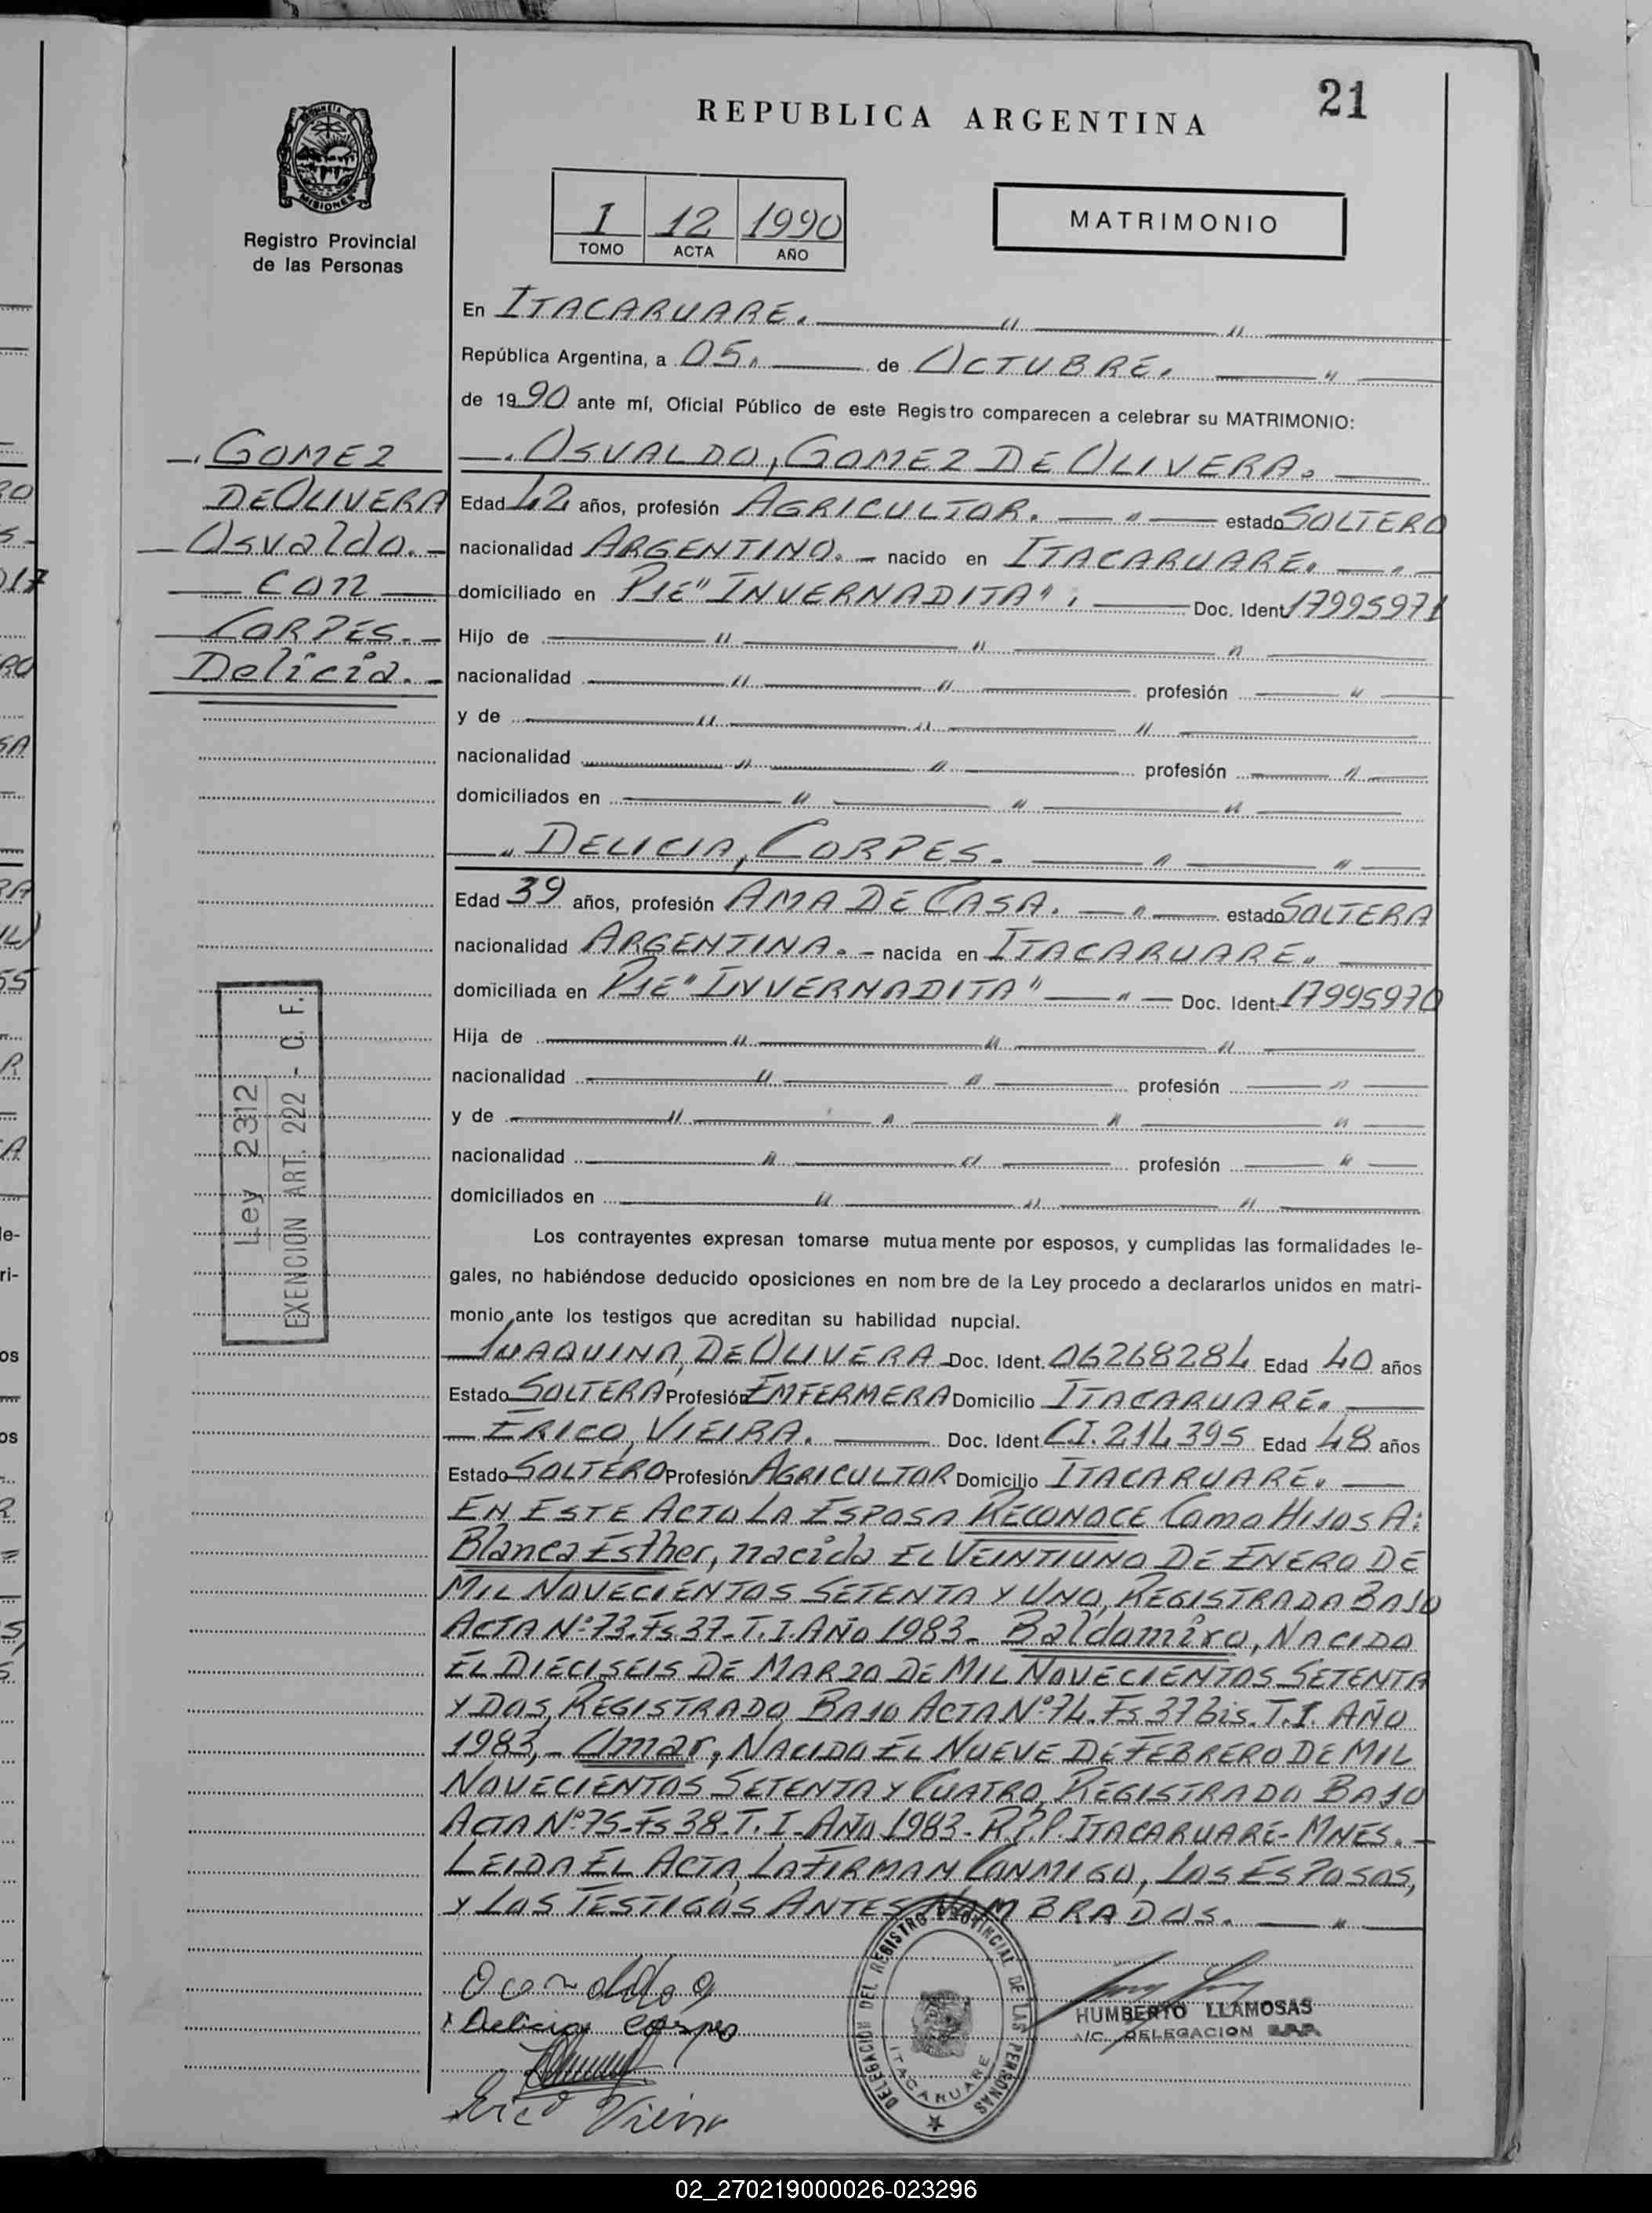 21
REPUBLICA ARGENTINA
MISIONES
Registro Provincial
de las Personas
I 12 1990
TOMO ACTA AÑO
MATRIMONIO
En ITACARUARE.
República Argentina, a 05. de OCTUBRE.
de 1990 ante mí, Oficial Público de este Registro comparecen a celebrar su MATRIMONIO:
GOMEZ
DE OLIVERA
Osvaldo.-
con
CORPES.-
Delicia.-
OSVALDO, GOMEZ DE OLIVERA.
Edad 42 años, profesión AGRICULTOR. estado SOLTERO
nacionalidad ARGENTINO. nacido en ITACARUARE.
domiciliado en PJE "INVERNADITA", Doc. Ident. 17995971
Hijo de
nacionalidad profesión
y de
nacionalidad profesión
domiciliados en
DELICIA, CORPES.
Edad 39 años, profesión AMA DE CASA. estado SOLTERA
nacionalidad ARGENTINA. nacida en ITACARUARE.
domiciliada en PJE "INVERNADITA" Doc. Ident. 17995970
Hija de
nacionalidad profesión
y de
nacionalidad profesión
domiciliados en
Ley 2312
EXENCION ART. 222 - C. F.
Los contrayentes expresan tomarse mutuamente por esposos, y cumplidas las formalidades le-
gales, no habiéndose deducido oposiciones en nombre de la Ley procedo a declararlos unidos en matri-
monio ante los testigos que acreditan su habilidad nupcial.
JUAQUINA, DE OLIVERA Doc. Ident. 06268284 Edad 40 años
Estado SOLTERA Profesión ENFERMERA Domicilio ITACARUARE.
ERICO, VIEIRA. Doc. Ident. C.I. 214395 Edad 48 años
Estado SOLTERO Profesión AGRICULTOR Domicilio ITACARUARE.
EN ESTE ACTO LA ESPOSA RECONOCE COMO HIJOS A:
Blanca Esther, nacida EL VEINTIUNO DE ENERO DE
MIL NOVECIENTOS SETENTA Y UNO, REGISTRADA BAJO
ACTA Nº 73.Fs 37-T.I.AÑO 1983- Baldomiro, NACIDO
EL DIECISEIS DE MARZO DE MIL NOVECIENTOS SETENTA
Y DOS, REGISTRADO BAJO ACTA Nº 74.Fs 37 bis.T.I. AÑO
1983,- Omar, NACIDO EL NUEVE DE FEBRERO DE MIL
NOVECIENTOS SETENTA Y CUATRO, REGISTRADO BAJO
ACTA Nº 75-Fs 38-T.I-AÑO 1983-R.P.P. ITACARUARE-MNES.-
LEIDA EL ACTA, LA FIRMAN CONMIGO, LOS ESPOSOS,
Y LOS TESTIGOS ANTES NOMBRADOS.
Delicia Corpes
Erico Vieira
DELEGACION DEL REGISTRO PROVINCIAL DE LAS PERSONAS
ITACARUARE
HUMBERTO LLAMOSAS
A/C. DELEGACION
02_270219000026-023296